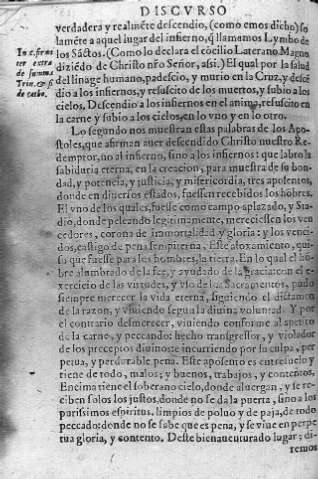 DISCVRSO
verdadera y realmēte descendio, (como emos dicho) so
lamēte a aquel lugar del infierno, q̄ llamamos Lymbo de
los Sāctos. (Como lo declara el cōcilio Lateranо Magno
diziēdo de Christo nr̄o Señor, assi.) El qual por la salud
del linage humano, padescio, y murio en la Cruz, y descē
dio a los infiernos, y resuscito de los muertos, y subio a los
cielos. Descendio a los infiernos en el anima, resuscito en
la carne y subio a los cielos, en lo vno y en lo otro.
In c. firmi
ter extra
de summa
Trin. & fi
de catho.
Lo segundo nos muestran estas palabras de los Apo-
stoles, que afirman auer descendido Christo nuestro Re-
demptor, no al infierno, sino a los infiernos: que labro la
sabiduria eterna, en la creacion, para muestra de su bon-
dad, y potencia, y justicia, y misericordia, tres aposentos,
donde en diuersos estados, fuessen recebidos los hōbres.
El vno de los quales, fuesse como campo aplazado, y Sta-
dio, donde peleando legitimamente, mereciessen los ven
cedores, corona de immortalidad y gloria: y los venci-
dos, castigo de pena sempiterna. Este aloxamiento, qui-
so que fuesse para los hombres, la tierra. En lo qual el hō-
bre alumbrado de la fee, y ayudado de la gracia: con el e-
xercicio de las virtudes, y vso de los Sacramentos, pudo
siempre merecer la vida eterna, siguiendo el dictamen
de la razon, y viuiendo segun la diuina voluntad. Y por
el contrario desmerecer, viuiendo conforme al apetito
de la carne, y peccando: hecho transgressor, y violador
de los preceptos diuinos: e incurriendo por su culpa, per
petua, y perdurable pena. Este aposento es entresuelo y
tiene de todo, malos; y buenos, trabajos, y contentos.
Encima tiene el soberano cielo, donde aluergan, y se re-
ciben solos los justos, donde no se da la puerta, sino a los
purissimos espiritus, limpios de poluo y de paja, de todo
peccado: donde no se sabe que es pena, y se viue en perpe
tua gloria, y contento. Deste bienauenturado lugar; di-
remos